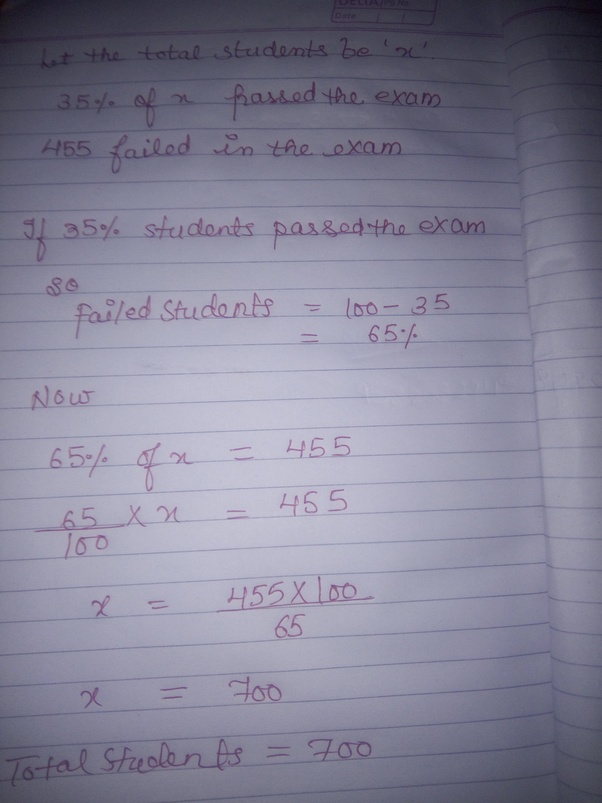 Let the total students be 'x'.
35% of x passed the exam
455 failed in the exam
If 35% students passed the exam
so
Failed Students = 100 - 35
= 65%
Now
65% of x = 455
65/100 × x = 455
x = 455×100/65
x = 700
Total Students = 700